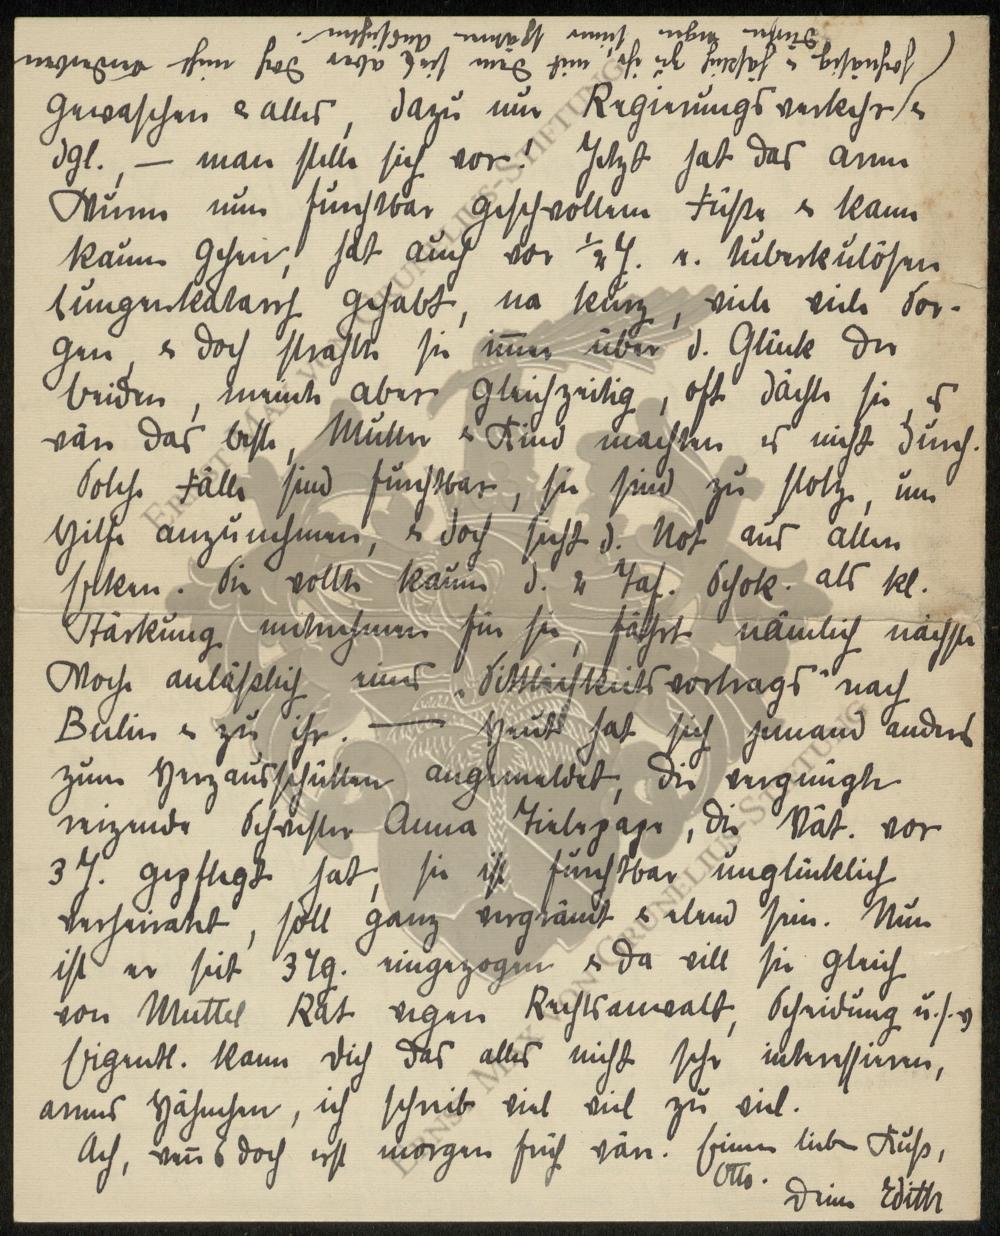 gewaschen & alles, dazu nur Regierungsverkehr &
dgl., — man stelle sich vor! Jetzt hat das arme
Wurm nun furchtbar geschwollene Füße & kann
kaum gehen, hat auch vor ½ J. e. tuberkulösen
Lungenkatarrh gehabt, na kurz, viele viele Sor-
gen, & doch strahlte sie immer über d. Glück der
beiden, meinte aber gleichzeitig, oft dächte sie, es
wäre das beste, Mutter & Kind machten es nicht durch.
Solche Fälle sind furchtbar, sie sind zu stolz, um
Hilfe anzunehmen, & doch sieht d. Not aus allen
Ecken. Sie wollte kaum d. 2 Taf. Schok. als kl.
Stärkung mitnehmen für sie, fährt nämlich nächste
Woche anläßlich eines „Sittlichkeitsvortrags" nach
Berlin & zu ihr. — Heute hat sich jemand anders
zum Herzausschütten angemeldet, die vergnügte
reizende Schwester Anna Tielepape, die Vät. vor
3 J. gepflegt hat, sie ist furchtbar unglücklich
verheiratet, soll ganz vergrämt & elend sein. Nun
ist er seit 3 Tg. eingezogen & da will sie gleich
von Muttel Rat wegen Rechtsanwalt, Scheidung u.s.w
Eigentl. kann Dich das alles nicht sehr interessieren,
armes Hähnchen, ich schreib viel viel zu viel.
Ach, wenns doch erst morgen früh wäre. Einen lieben Kuß,
Otto.
Deine Edith
ERNST MAX VON GRUNELIUS-STIFTUNG
ERNST MAX VON GRUNELIUS-STIFTUNG